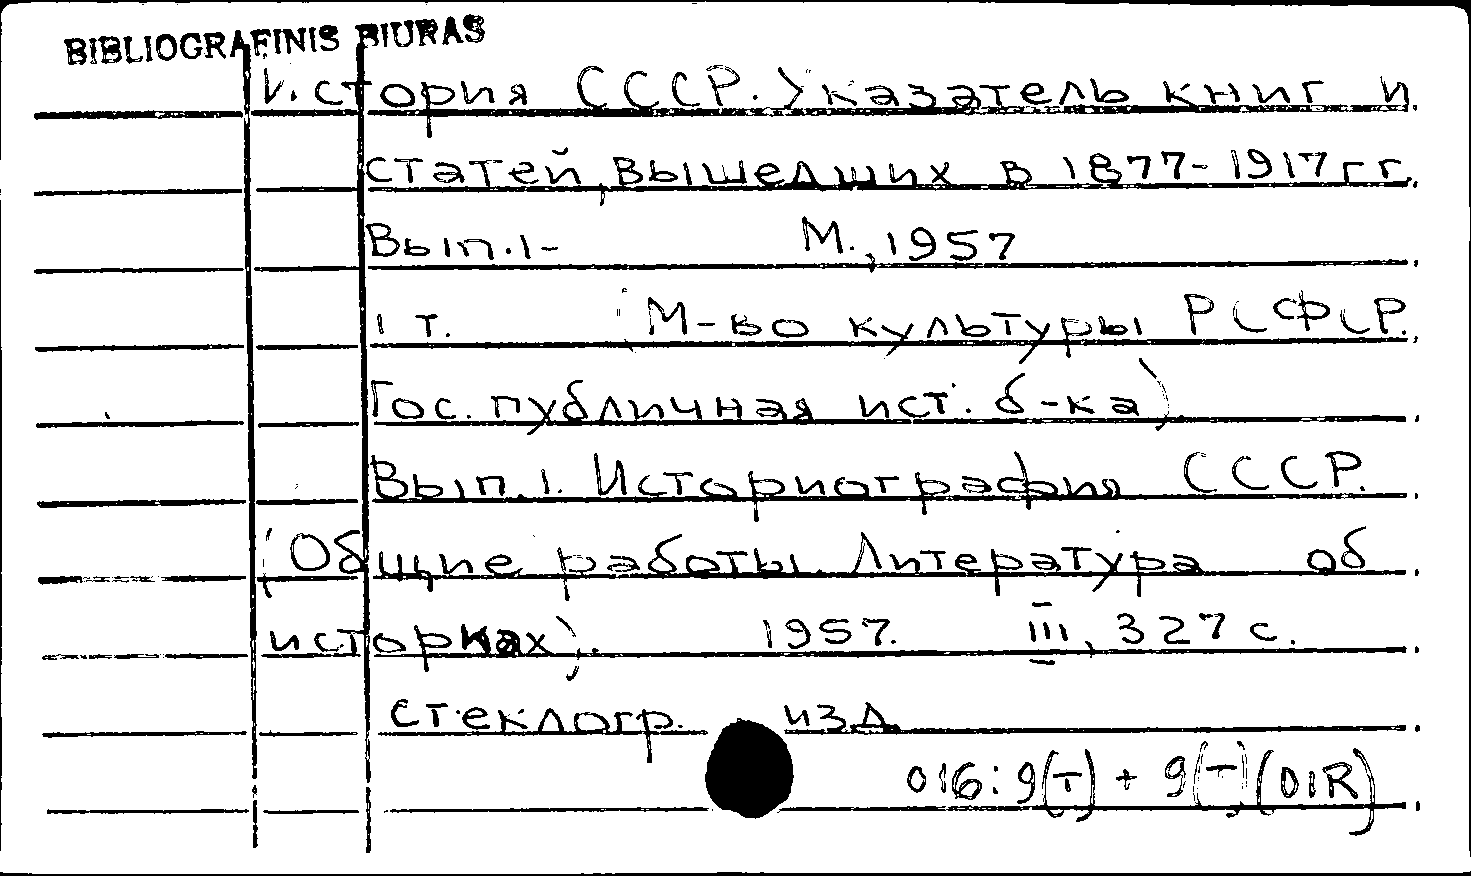 BIBLIOGRAFINIS BIURAS
История СССР. Указатель книг и
статей, вышедших в 1877-1917 гг.
Вып. 1- М., 1957
1 т. (М-во культуры РСФСР.
Гос. публичная ист. б-ка)
Вып. 1. Историография СССР.
(Общие работы. Литература об
историках). 1957. III, 327 с.
стеклогр. изд.
016:9(T) + 9(T)(01R)